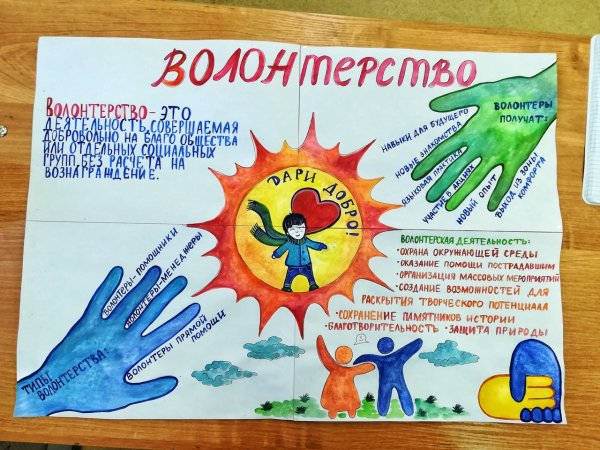 ВОЛОНТЕРСТВО
ВОЛОНТЕРСТВО - ЭТО
ДЕЯТЕЛЬНОСТЬ, СОВЕРШАЕМАЯ
ДОБРОВОЛЬНО НА БЛАГО ОБЩЕСТВА
ИЛИ ОТДЕЛЬНЫХ СОЦИАЛЬНЫХ
ГРУПП, БЕЗ РАСЧЕТА НА
ВОЗНАГРАЖДЕНИЕ.
ВОЛОНТЕРЫ
ПОЛУЧАТ:
НАВЫКИ ДЛЯ БУДУЩЕГО
НОВЫЕ ЗНАКОМСТВА
ЯЗЫКОВАЯ ПРАКТИКА
УЧАСТИЕ В АКЦИЯХ
НОВЫЙ ОПЫТ
ВЫХОД ИЗ ЗОНЫ
КОМФОРТА
ДАРИ ДОБРО!
ТИПЫ
ВОЛОНТЕРСТВА:
ВОЛОНТЕРЫ-ПОМОЩНИКИ
ВОЛОНТЕРЫ-МЕНЕДЖЕРЫ
ВОЛОНТЕРЫ ПРЯМОЙ
ПОМОЩИ
ВОЛОНТЕРСКАЯ ДЕЯТЕЛЬНОСТЬ:
· ОХРАНА ОКРУЖАЮЩЕЙ СРЕДЫ
· ОКАЗАНИЕ ПОМОЩИ ПОСТРАДАВШИМ
· ОРГАНИЗАЦИЯ МАССОВЫХ МЕРОПРИЯТИЙ
· СОЗДАНИЕ ВОЗМОЖНОСТЕЙ ДЛЯ
РАСКРЫТИЯ ТВОРЧЕСКОГО ПОТЕНЦИАЛА
· СОХРАНЕНИЕ ПАМЯТНИКОВ ИСТОРИИ
· БЛАГОТВОРИТЕЛЬНОСТЬ · ЗАЩИТА ПРИРОДЫ